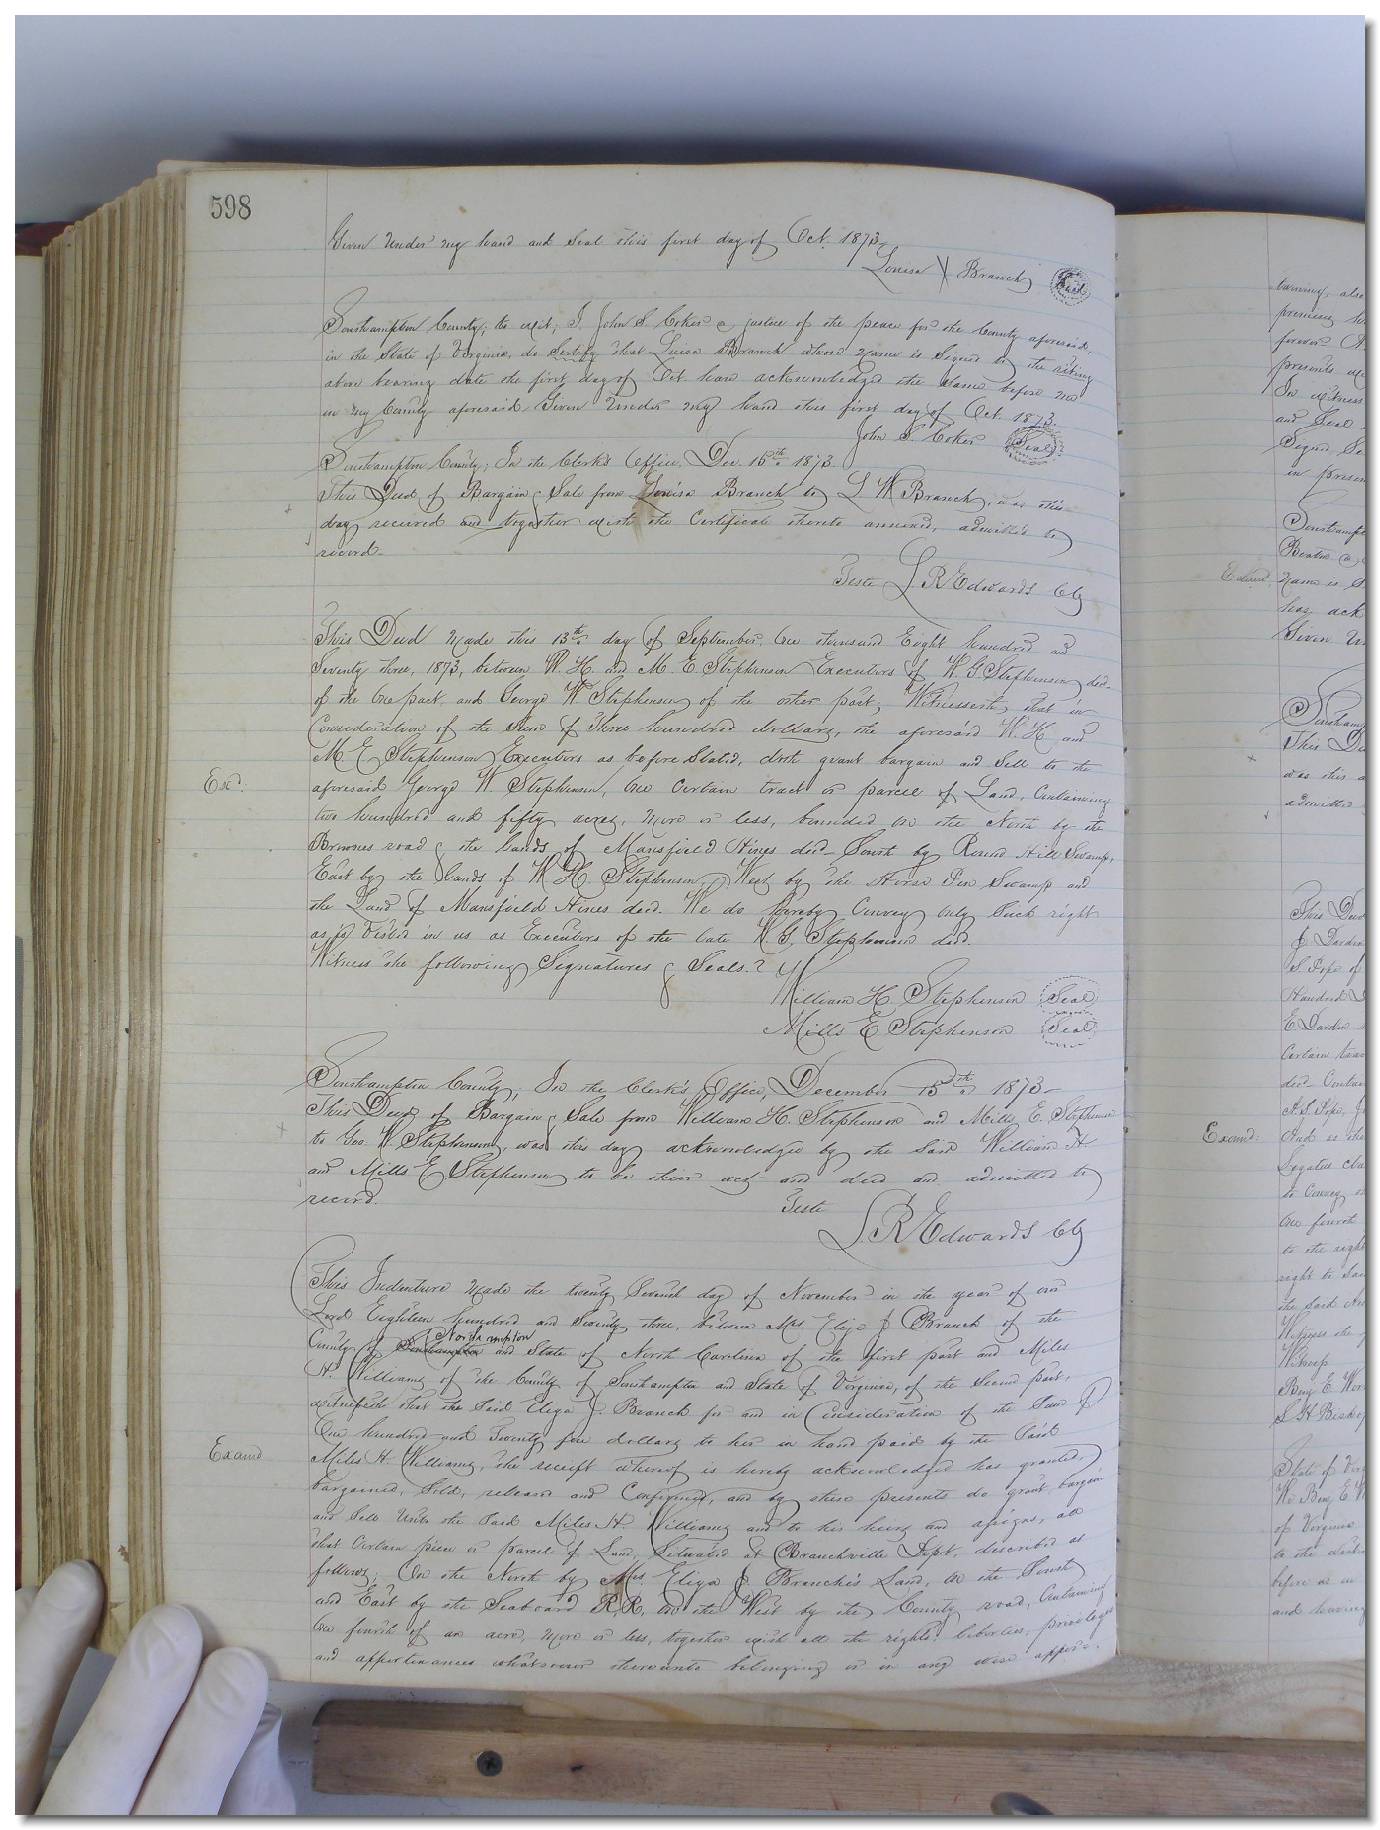 598
Given under my hand and Seal this first day of Oct. 1873.
Louisa X Branch Seal
Southampton County, to wit; I John S. Coker a justice of the peace for the County aforesaid,
in the State of Virginia, do Certify that Luisa Branch whose name is Signed to the
above bearing date the first day of Oct. have acknowledged the same before me
in my County aforesaid Given under my hand this first day of Oct. 1873.
John S. Coker Seal
Southampton County; In the Clerk's Office, Dec. 15th 1873.
This Deed of Bargain & Sale from Louisa Branch to L W Branch, was this
day received and together with the Certificate thereto annexed, admitted to
record.
Teste L R Edwards Clk
This Deed made this 13th day of September, One thousand Eight hundred and
Seventy three, 1873, between W. H. and M. E. Stephenson Executors of W. G Stephenson decd.
of the One part, and George W Stephenson of the other part, Witnesseth, that in
Consideration of the Sum of Three hundred dollars, the aforesaid W. H. and
M. E. Stephenson Executors as before Stated, doth grant bargain and Sell to the
Exd.
aforesaid George W. Stephenson, One Certain tract or parcel of Land, Containing
two hundred and fifty acres, more or less, bounded on the North by the
Brownes road & the lands of Mansfield Hines decd South by Round Hill Swamp,
East by the lands of W. H. Stephenson, West by the Horse Pen Swamp and
the Land of Mansfield Hines decd. We do hereby Convey only Such right
as is Vested in us as Executors of the late W. G. Stephenson decd.
Witness the following Signatures & Seals.
William H Stephenson Seal
Mills E Stephenson Seal
Southampton County; In the Clerk's Office, December 15th 1873
This Deed of Bargain & Sale from William H. Stephenson and Mills E. Stephenson
to Geo. W Stephenson, was this day acknowledged by the Said William H
and Mills E Stephenson to be their act and deed and admitted to
record.
Teste
L R Edwards Clk
This Indenture made the twenty Seventh day of November in the year of our
Lord Eighteen hundred and Seventy three, between Mrs Eliza J Branch of the
Northampton
County of Southampton and State of North Carolina of the first part and Miles
H. Williams of the County of Southampton and State of Virginia, of the Second part,
witnesseth that the Said Eliza J. Branch for and in Consideration of the Sum of
One hundred and Twenty five dollars to her in hand paid by the Said
Examd
Miles H. Williams, the receipt whereof is hereby acknowledged has granted,
bargained, Sold, released and Confirmed, and by these presents do grant, bargain
and Sell Unto the Said Miles H. Williams and to his heirs and assigns, all
that Certain piece or parcel of Land, Situated at Branchville Dept, described as
follows; On the North by Mrs. Eliza J. Branch's Land, on the South
and East by the Seaboard R.R, on the West by the County road, Containing
One fourth of an acre, more or less, together with all the rights, liberties, privileges
and appertinances whatsoever thereunto belonging or in any wise apper-
also
forever
presents
In witness
and Seal
Signed
in presen
Given
Name is
hay ack
This De
was this
admitted
This Deed
S. Pope of
Hundred
Certain trac
Examd.
to Convey
One fourth
to the right
right to
the Said
Witness the
Benj E.
S H Bishop
State of Vir
We Benj E
of Virginia
before
and having